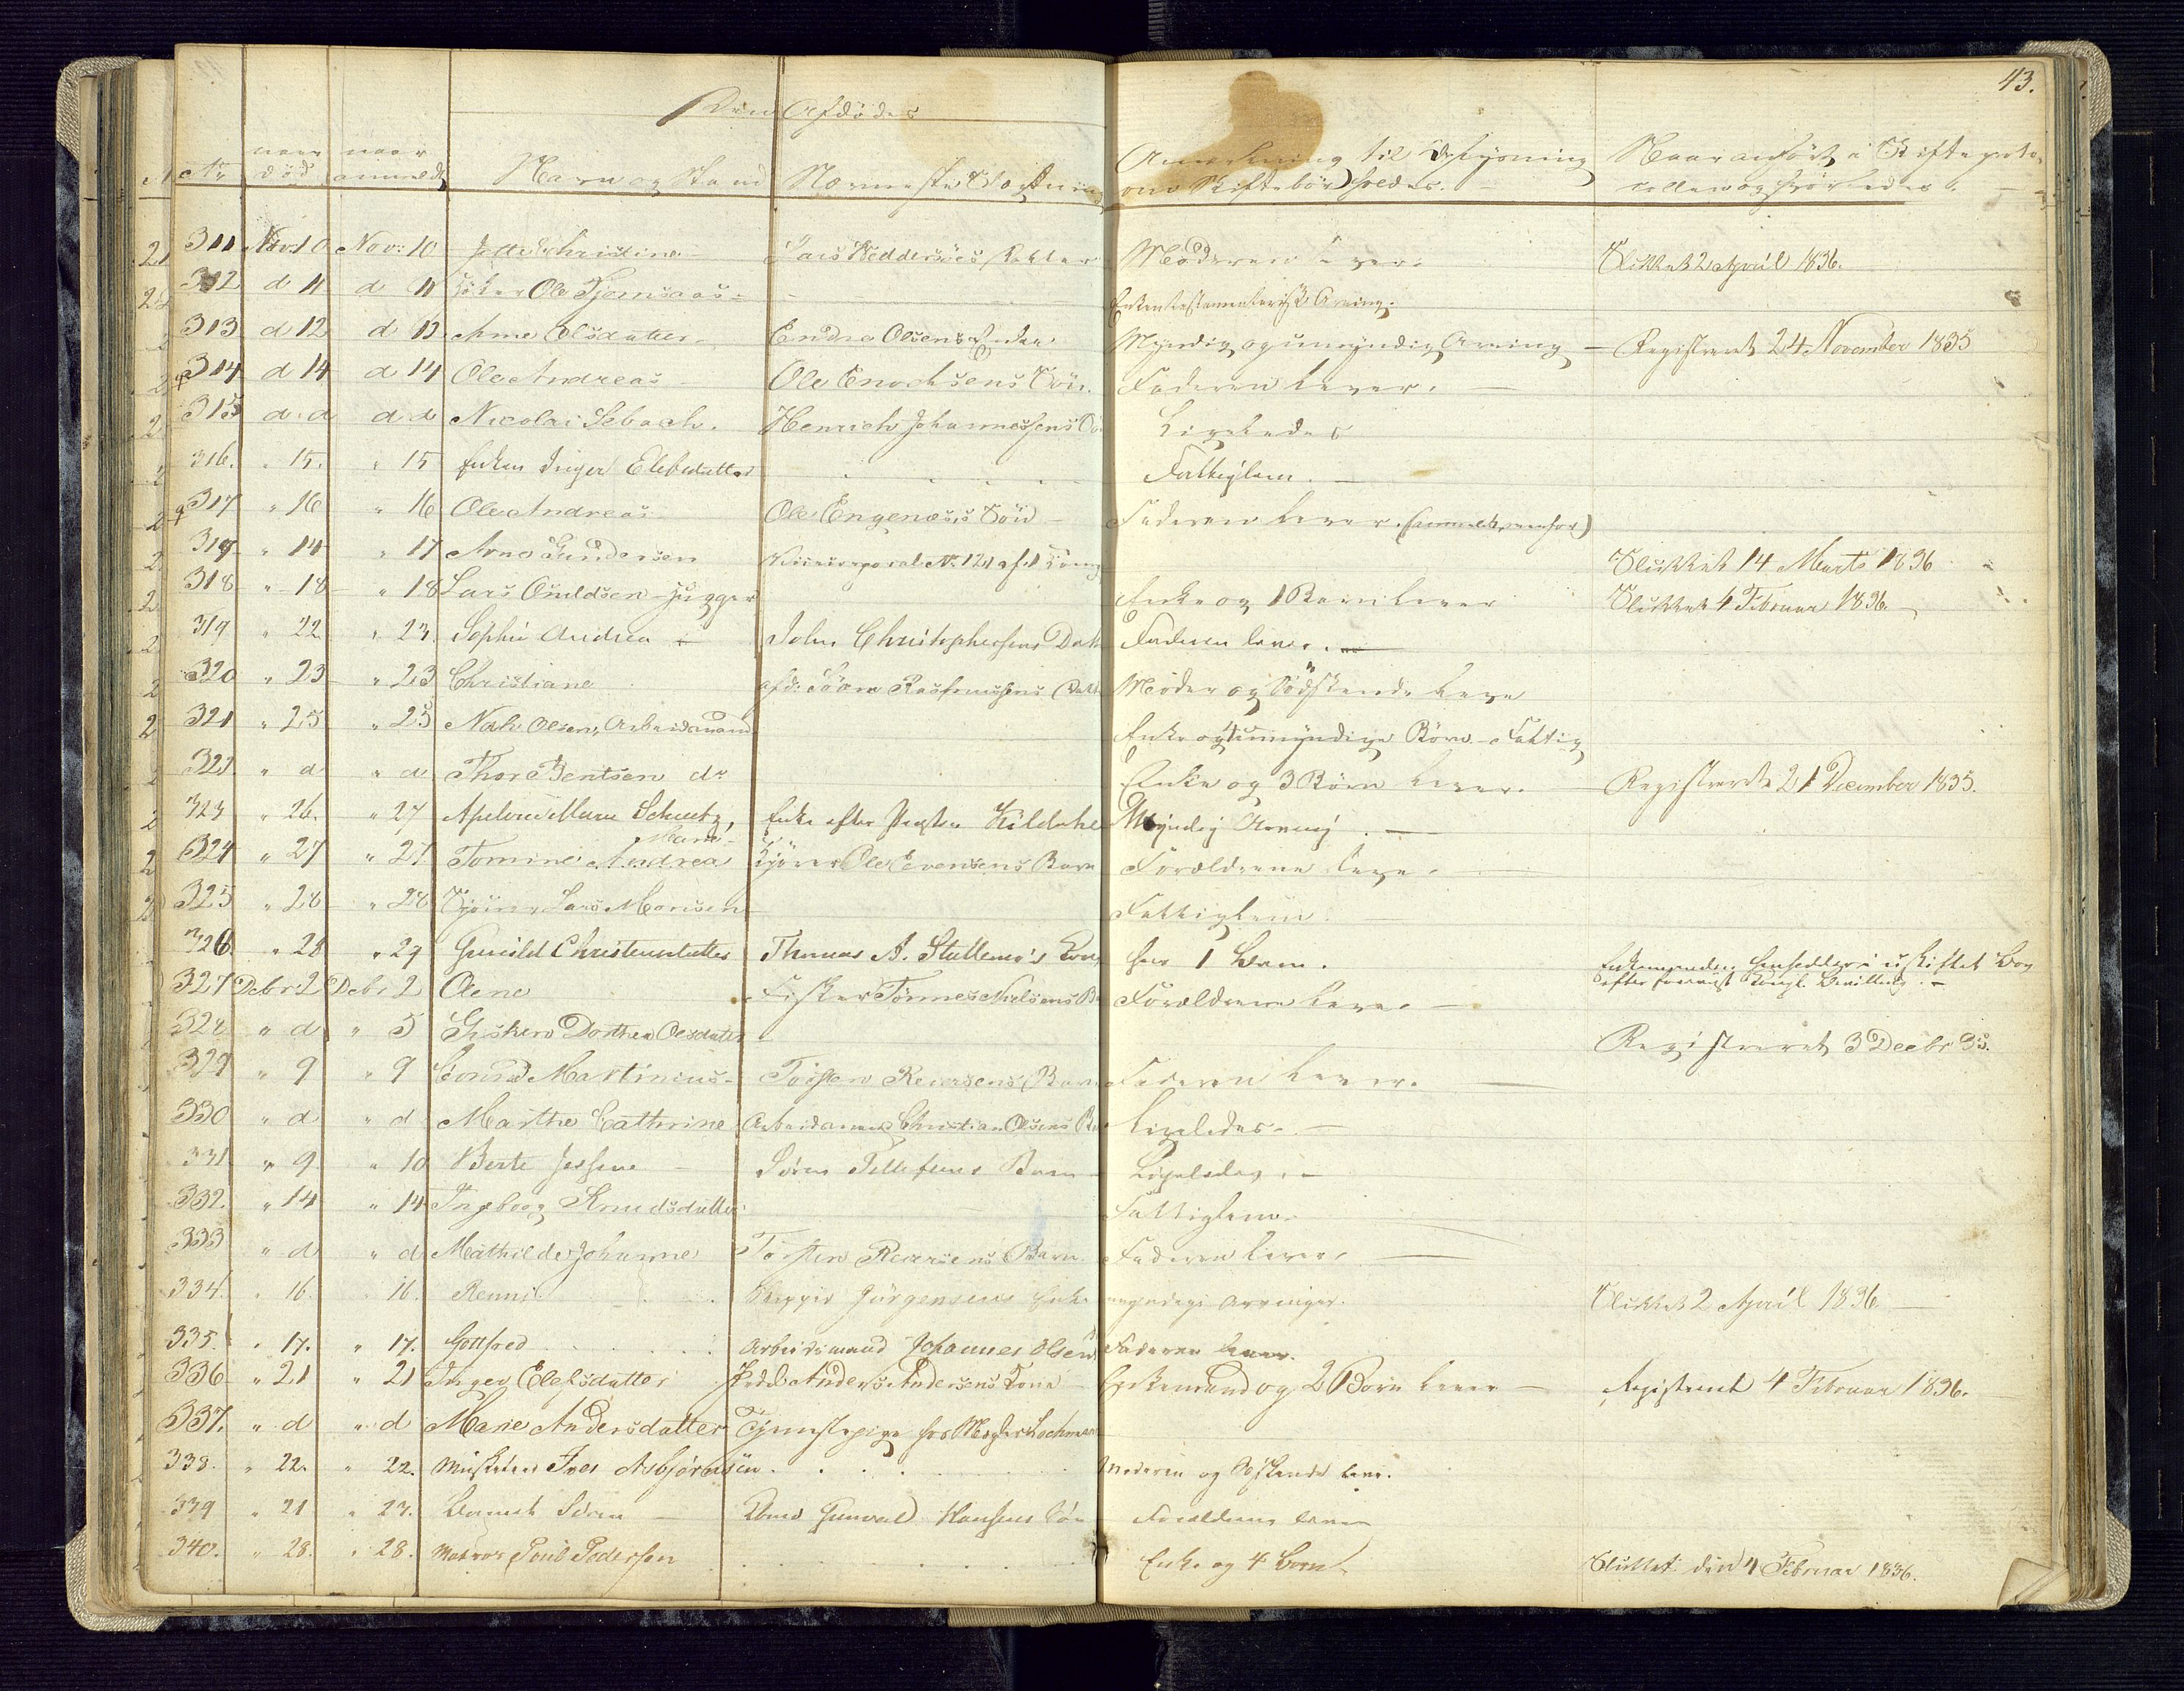 43.
Den Afdödes
No
naar död
naar anmeldt
Navn og Stand
Nærmeste Slægtning
Anmærkning til Oplysning om Skiftebör holdes.
Naar anført i Skifteprotocollen og hvorledes.
311 Nov: 10 Nov: 10 Christine Lars Moderen lever. Sluttet 2 April 1836.
312 d 11 d 11 Ole Enken testamentarisk Arving.
313 d 12 d 13 Anne Olsdatter Endre Olsens Enke Myndig og umyndig Arving Registreret 24 November 1835
314 d 14 d 14 Ole Andreas Ole Enochsens Sön Faderen lever.
315 d d d d Nicolai Sebach. Henrich Johannessens Ligeledes
316. " 15. " 15 Enken Inger Elefsdatter Fattiglem.
317 " 16 " 16 Ole Andreas Ole Engenæs's Sön Faderen lever. (anmeldt ovenfor)
318 " 14 " 17 Arne Gundersen No. 121 af 1 Sluttet 14 Marts 1836
318 " 18 " 18 Lars Enke og 1 Barn lever Sluttet 4 Februar 1836.
319 " 22 " 23. Sophie Andrea John Christophersens Datt Faderen lever.
320 " 23 " 23 Christiane afd: Rasmussens Datt Moder og Södskende leve
321 " 25 " 25 Olsen, Arbeidsmand Enke og 4 umyndige Börn - Fattig
322 " d " d Thor Bentsen do Enke og 3 Börn lever. Registreret 21 December 1835.
323 " 26. " 27 Schultz, Enke efter Myndig Arving.
324 " 27 " 27 Tomine Andrea Marie Ole Evensens Barn Forældrene leve.
325 " 28 " 28 Lars Monsen Fattiglem.
326. " 28 " 29 Gunild Christensdatter Thomas A. Kone, har 1 Barn. Enkemanden hensidder i uskiftet Boe efter Kongl. Bevilling.
327 Debr 2 Debr 2 Olene Fisker Tönnes Nielsens B Forældrene leve.
328 " d " 5 Dorthea Olesdatter Registreret 3 Decbr 35.
329 " 9 " 9 Martinius Torsten Reiersens Barn Faderen lever.
330 " d " d Marthe Cathrine Arbeidsmand Christian Olsens B Ligeledes.
331. " 9 " 10 Berte Sören Tellefsens Barn Ligeledes.
332. " 14 " 14 Ingeborg Knudsdatter Fattiglem.
333 " d " d Mathilde Johanne Torsten Reiersens Barn. Faderen lever.
334. " 16. " 16. Jürgensens Enke myndige Arvinger. Sluttet 2 April 1836
335. " 17. " 17. Gottfred Arbeidsmand Johannes Olsen Faderen lever.
336 " 21 " 21 Inger Elefsdatter Anders Andersens Kone Enkemand og 2 Börn lever Registreret 4 Februar 1836.
337. " d " d Marie Andersdatter Tjenestepige hos
338. " 22. " 22. Iver Asbjørnsen Moderen og Söskende leve.
339 " 21 " 23. Gunvald Hansens Sön Forældrene leve
340. " 28. " 28. Matros Poul Pedersen Enke og 4 Börn Sluttet den 4 Februar 1836.